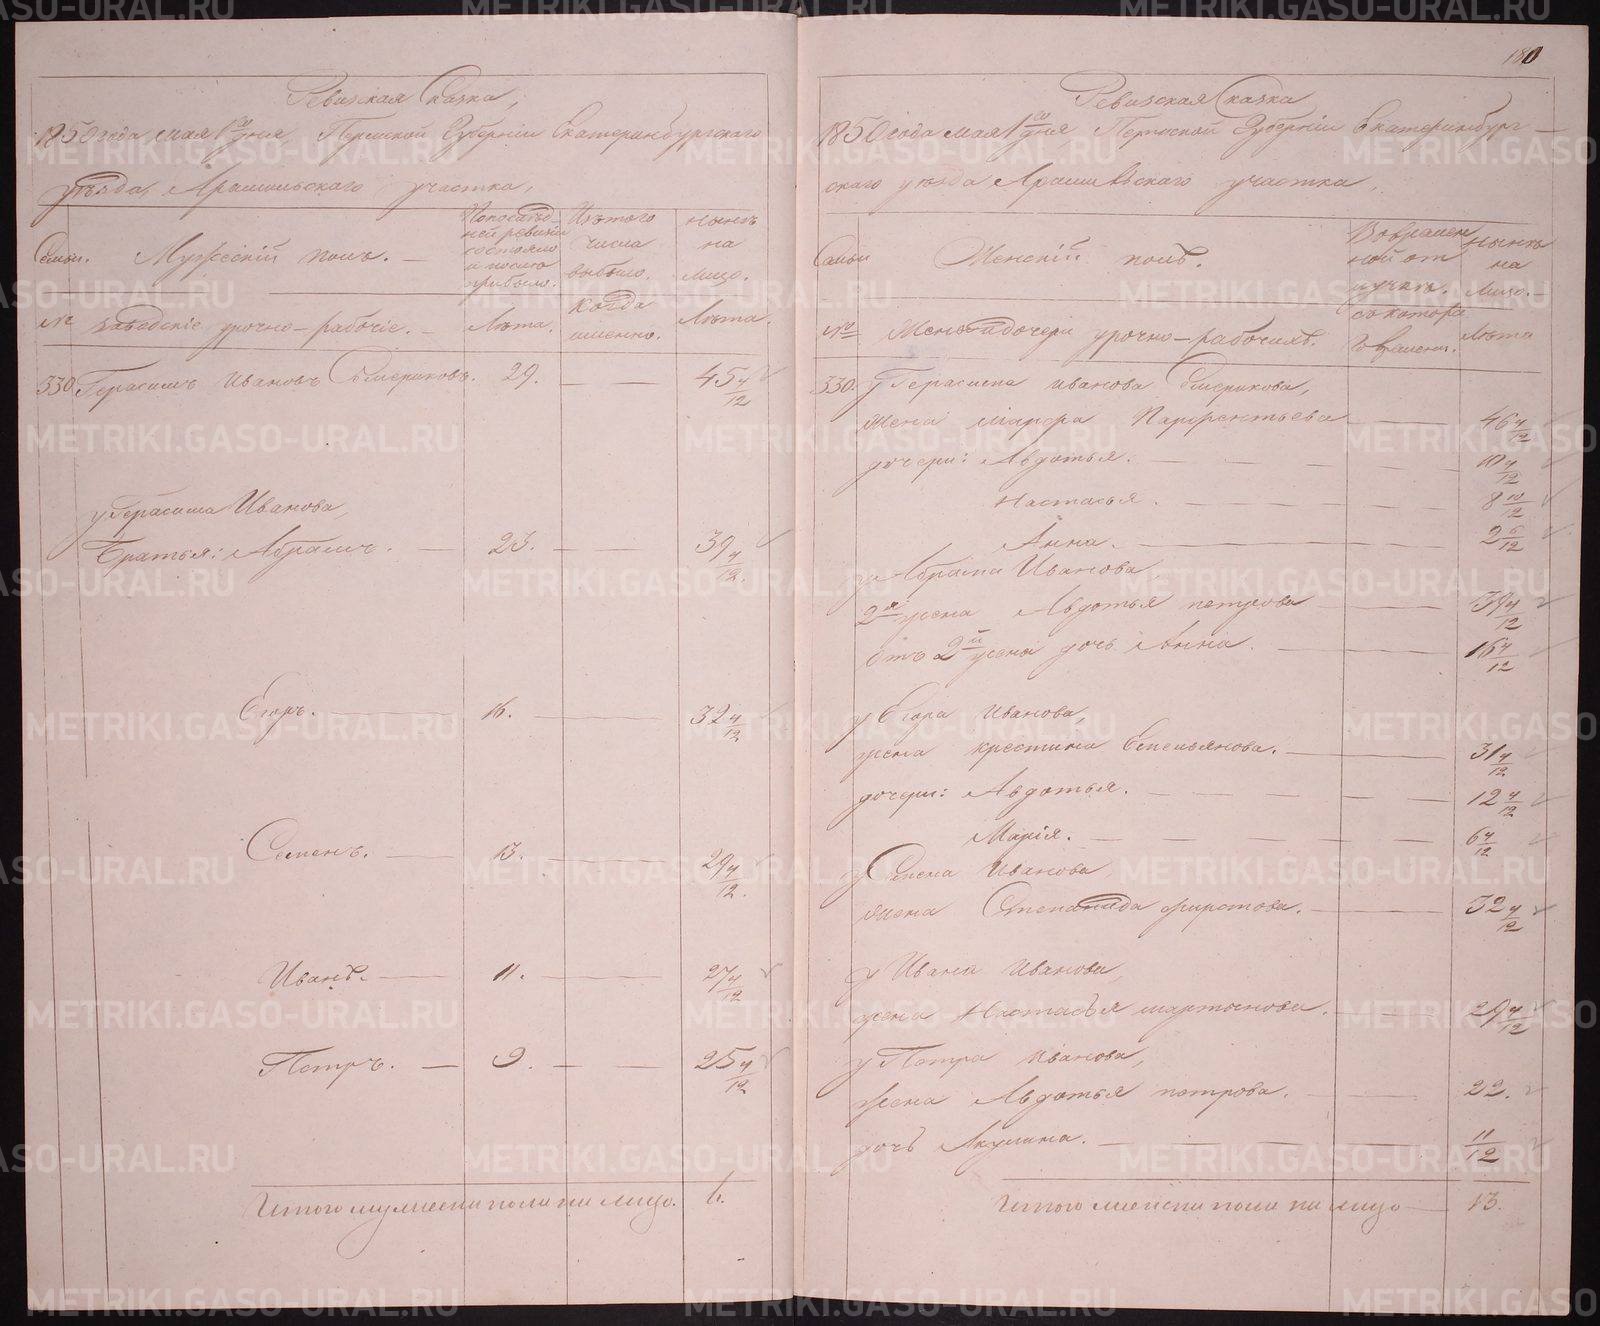 Ревизская Сказка,
1850 года мая 1го дня, Пермской Губернiи Екатеринбургскаго
уѣзда, Арамильскаго участка,
Семьи.
Мужескiй полъ.
По последней ревизiи состояло и после прибыло.
Изъ того числа выбыло.
нынѣ на лицо.
№
заводскiе урочно-рабочiе.
Лѣта.
когда именно.
Лѣта.
330 Герасимъ Ивановъ 29. 45 4/12
у Герасима Иванова,
Братья: Абрамъ. 23. 39 4/12.
Егоръ. 16. 32 4/12
Семенъ. 13. 29 4/12.
Иванъ. 11. 27 4/12
Петръ. 9. 25 4/12
Итого мужеска пола на лицо. 6.
180
Ревизская Сказка
1850 года мая 1го дня, Пермской Губернiи Екатеринбург-
скаго уѣзда Арамильскаго участка,
Семьи
Женскiй полъ.
Во временной отлучкѣ.
нынѣ на лицо.
№
Жены и дочери урочно-рабочихъ.
съ котораго времени.
Лѣта
330. у Герасима Иванова
жена Марфа Парфентьева 46 4/12
дочери: Авдотья. 10 4/12
Настасья. 8 10/12
Анна. 2 6/12
у Абрама Иванова,
2я жена Авдотья 39 4/12
отъ 2й жены дочь Анна. 16 4/12
у Егора Иванова,
жена Крестина Емельянова. 31 4/12
дочери: Авдотья. 12 4/12
Марiя. 6 4/12
у Семена Иванова
жена Степанида Фирстова. 32 4/12
у Ивана Иванова,
жена Настасья Мартынова. 29 4/12
у Петра Иванова,
жена Авдотья Петрова. 22.
дочь Акулина. 11/12
Итого женска пола на лицо 13.
METRIKI.GASO-URAL.RU